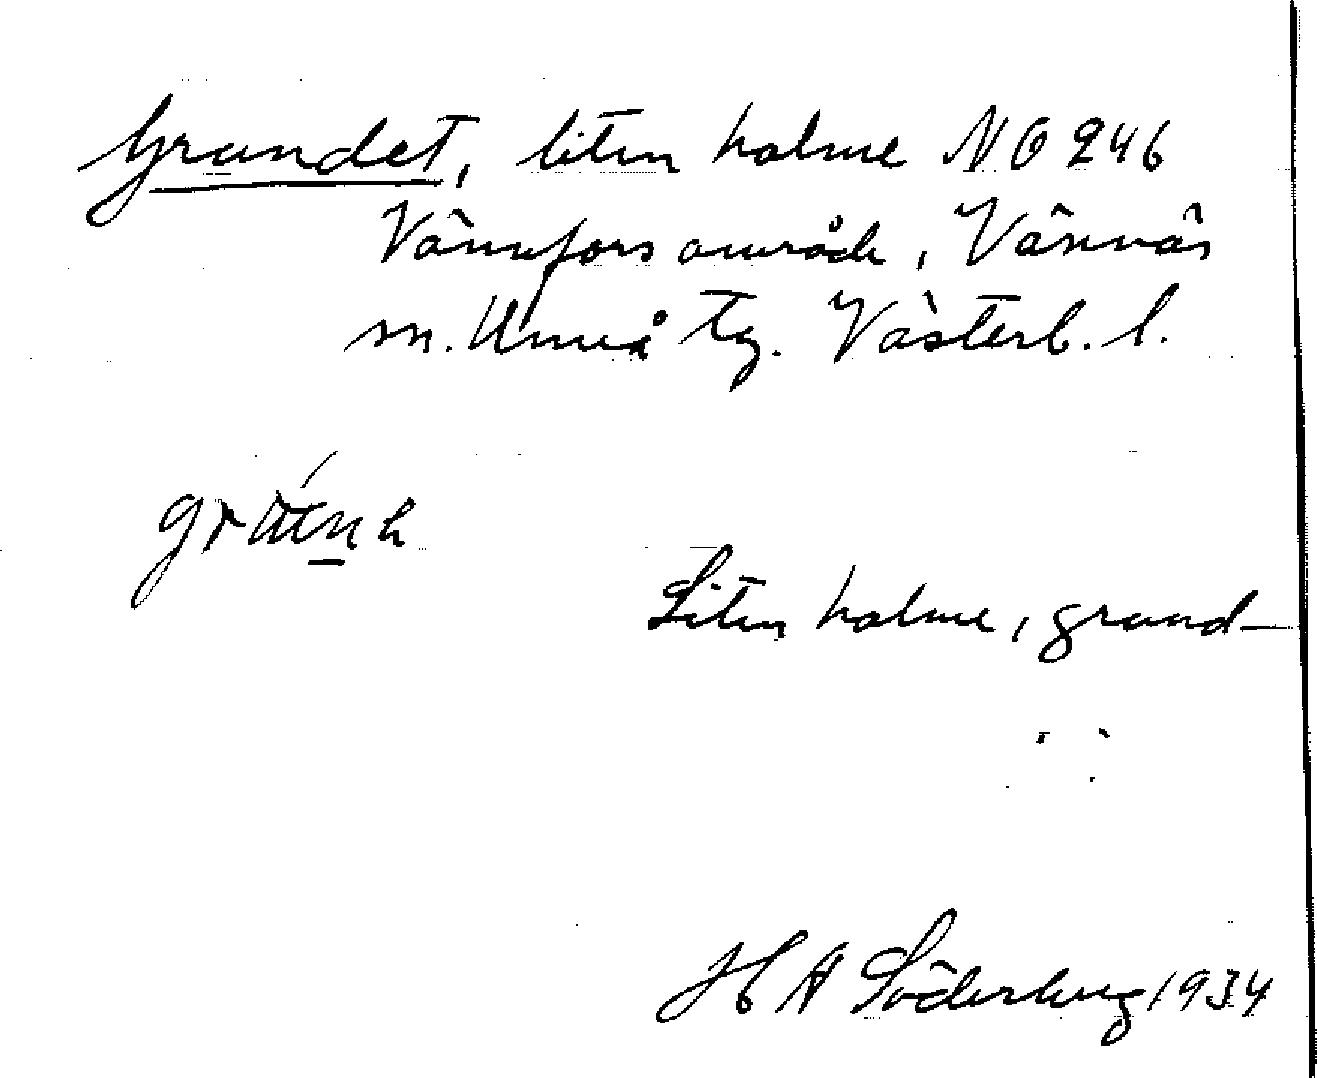 Grundet, liten holme NO 246
Vännfors område, Vännäs
sn. Umeå tg. Västerb. l.
Liten holme, grund-
H A Söderberg 1934